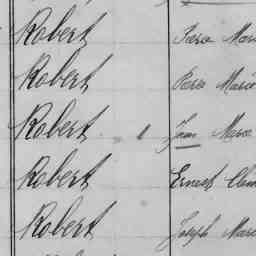 Robert Marie
Robert Marie
Robert Jean Marie
Robert Ernest Clem
Robert Joseph Marie